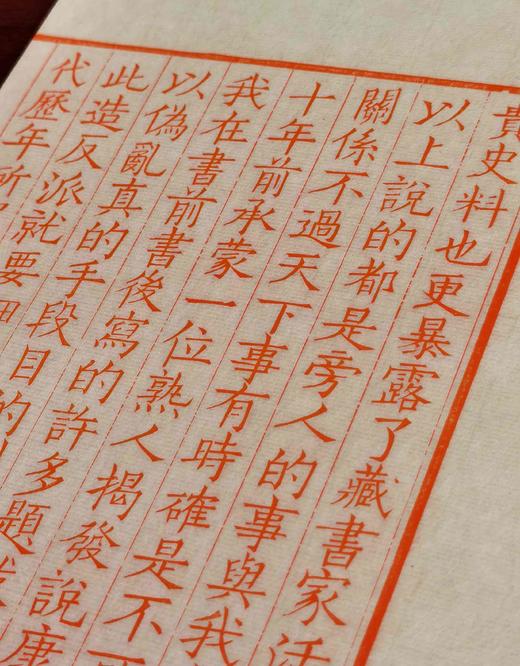 貴史料也更暴露了藏書家活
以上說的都是旁人的事與我
關係不過天下事有時確是不
十年前承蒙一位熟人揭發說康
我在書前書後寫的許多題
以偽亂真的手段目的
此造反派就要
代歷年所